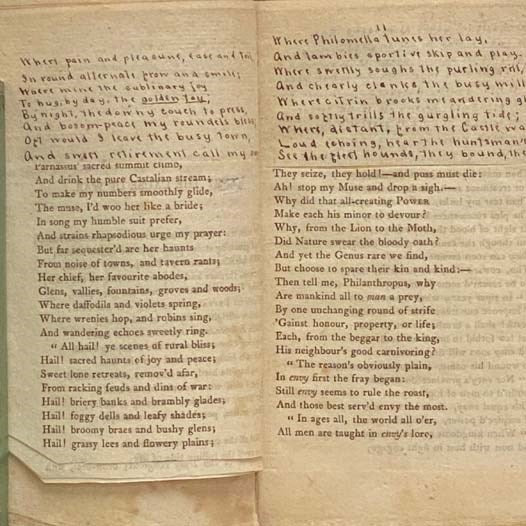 Where pain and pleasure, ease and
In round alternate frown and smile;
Where mine the sublunary joy
To hug, by day, the golden toy,
By night, the downy touch to press,
And bosom-peace my roundels bless
Oft would I leave the busy town,
And sweet retirement call my
Parnassus' sacred summit climb,
And drink the pure Castalian stream;
To make my numbers smoothly glide,
The muse, I'd woo her like a bride;
In song my humble suit prefer,
And strains rhapsodious urge my prayer:
But far sequester'd are her haunts
From noise of towns, and tavern rants;
Her chief, her favourite abodes,
Glens, vallies, fountains, groves and woods;
Where daffodils and violets spring,
Where wrenies hop, and robins sing,
And wandering echoes sweetly ring.
" All hail! ye scenes of rural bliss;
Hail! sacred haunts of joy and peace;
Sweet lone retreats, remov'd afar,
From racking feuds and dins of war:
Hail! briery banks and brambly glades;
Hail! foggy dells and leafy shades;
Hail! broomy braes and bushy glens;
Hail! grassy lees and flowery plains;
11
Where Philomella tunes her lay,
And lambies sportive skip and play,
Where sweetly soughs the purling rill,
And chearly clanks the busy mill
Where citrin brooks meandering
And softly trills the gurgling tide;
Where, distant, from the Castle
Loud echoing, hear the huntsman's
See the fleet hounds, they bound, the
They seize, they hold!—and puss must die:
Ah! stop my Muse and drop a sigh.—
Why did that all-creating POWER
Make each his minor to devour?
Why, from the Lion to the Moth,
Did Nature swear the bloody oath?
And yet the Genus rare we find,
But choose to spare their kin and kind:—
Then tell me, Philanthropus, why
Are mankind all to man a prey,
By one unchanging round of strife
'Gainst honour, property, or life;
Each, from the beggar to the king,
His neighbour's good carnivoring?
" The reason's obviously plain,
In envy first the fray began:
Still envy seems to rule the roast,
And those best serv'd envy the most.
" In ages all, the world all o'er,
All men are taught in envy's lore,